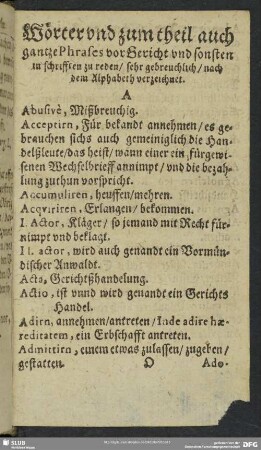 Wörter vnd zum theil auch
gantze Phrases vor Gericht vnd sonsten
in schrifften zu reden / sehr gebreuchlich / nach
dem Alphabeth verzeichnet.
A
Abusivè, Mißbreuchig.
Acceptirn, Für bekandt annehmen / es ge-
brauchen sichs auch gemeiniglich die Han-
delßleute / das heist / wann einer ein fürgewi-
senen Wechselbrieff annimpt / vnd die bezah-
lung zuthun vorspricht.
Accumuliren, heuffen / mehren.
Acqviriren, Erlangen / bekommen.
I. Actor, Kläger / so jemand mit Recht für-
nimpt vnd beklagt.
II. actor, wird auch genandt ein Vormün-
discher Anwaldt.
Acta, Gerichtßhandelung.
Actio, ist vnnd wird genandt ein Gerichts
Handel.
Adirn, annehmen / antreten / Inde adire hæ-
reditatem, ein Erbschafft antreten.
Admittirn, einem etwas zulassen / zugeben /
gestatten.
D Ado-
SLUB
DFG